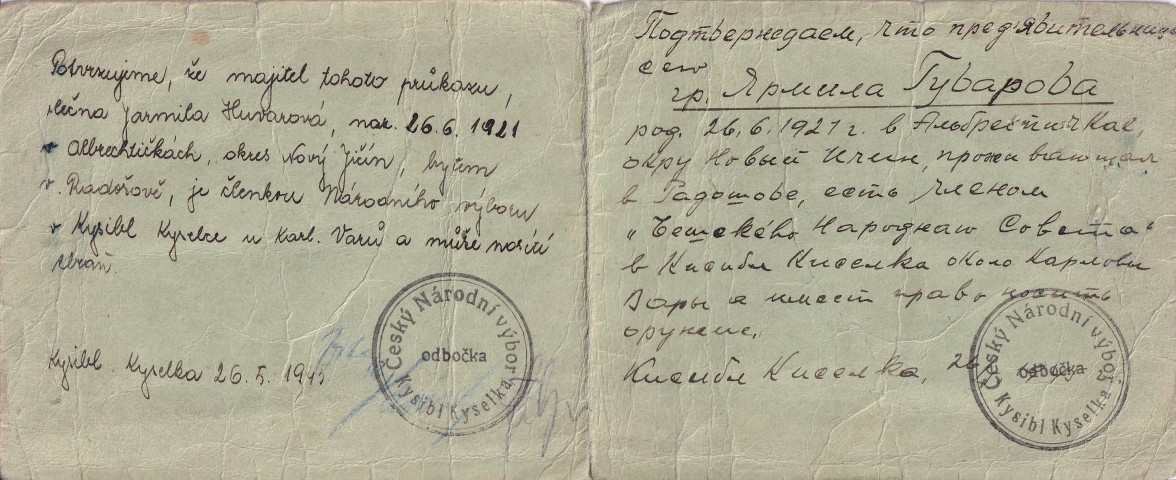 Potvrzujeme, že majitel tohoto průkazu,
slečna Jarmila Huvarová, nar. 26.6.1921
v Albrechtičkách, okres Nový Jičín, bytem
v Radošově, je členkou Národního výboru
v Kysibl Kyselce u Karl. Varů a může nositi
zbraň.
Kysibl. Kyselka 26.5.194
Český Národní výbor
odbočka
Kysibl Kyselka
Подтверждаем, что предъявительница
сего
гр. Ярмила Гуварова
род. 26.6.1921 г. в Альбрехтичках,
окру Новый Ичин, проживающая
в Радошове, есть членом
„Чешскéго Народнаго Совета"
в Кисибл Киселка около Карлови
Вары и имеет право носить
оружие.
Кисибл Киселка, 26
Český Národní výbor
odbočka
Kysibl Kyselka